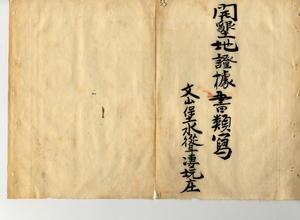 開墾地證據書類寫
文山堡水聳淒坑庄